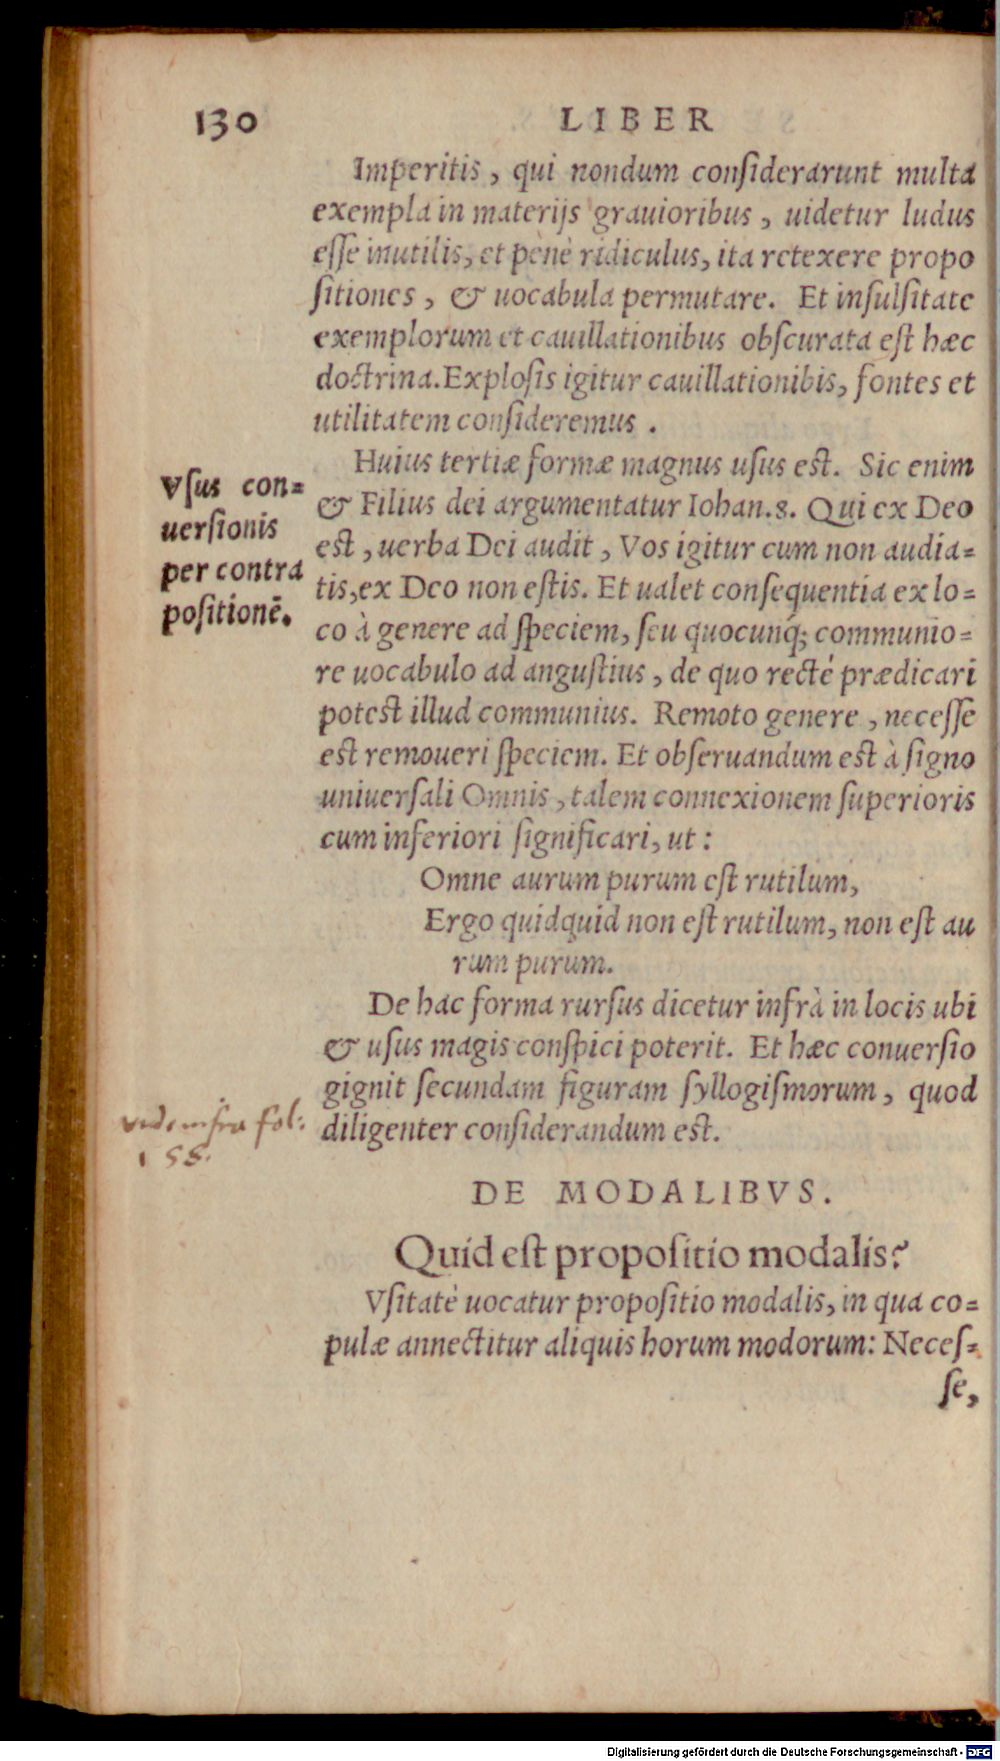 130 LIBER
Imperitis, qui nondum considerarunt multa
exempla in materijs grauioribus, uidetur ludus
esse inutilis, et pènè ridiculus, ita retexere propo
sitiones, & uocabula permutare. Et insulsitate
exemplorum et cauillationibus obscurata est hæc
doctrina. Explosis igitur cauillationibis, fontes et
utilitatem consideremus.
Huius tertiæ formæ magnus usus est. Sic enim
& Filius dei argumentatur Iohan. 8. Qui ex Deo
est, uerba Dei audit, Vos igitur cum non audia=
tis, ex Deo non estis. Et ualet consequentia ex lo=
co à genere ad speciem, seu quocunq́; communio=
re uocabulo ad angustius, de quo recté prædicari
potest illud communius. Remoto genere, necesse
est remoueri speciem. Et obseruandum est à signo
uniuersali Omnis, talem connexionem superioris
cum inferiori significari, ut:
Omne aurum purum est rutilum,
Ergo quidquid non est rutilum, non est au
rum purum.
De hac forma rursus dicetur infrà in locis ubi
& usus magis conspici poterit. Et hæc conuersio
gignit secundam figuram syllogismorum, quod
diligenter considerandum est.
Vsus con=
uersionis
per contra
positionē.
vide infra fol:
158.
DE MODALIBVS.
Quid est propositio modalis?
Vsitatè uocatur propositio modalis, in qua co=
pulæ annectitur aliquis horum modorum: Neces=
se,
Digitalisierung gefördert durch die Deutsche Forschungsgemeinschaft - DFG